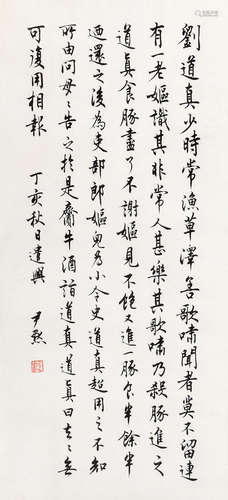 劉道真少時常漁草澤善歌嘯聞者莫不留連
有一老嫗識其非常人甚樂其歌嘯乃殺豚進之
道真食豚盡了不謝嫗見不飽又進一豚食半餘半
迺還之後為吏部郎嫗兒為小令史道真超用之不知
所由問母母告之於是齎牛酒詣道真道真曰去去無
可復用相報
丁亥秋日遣興 尹熙